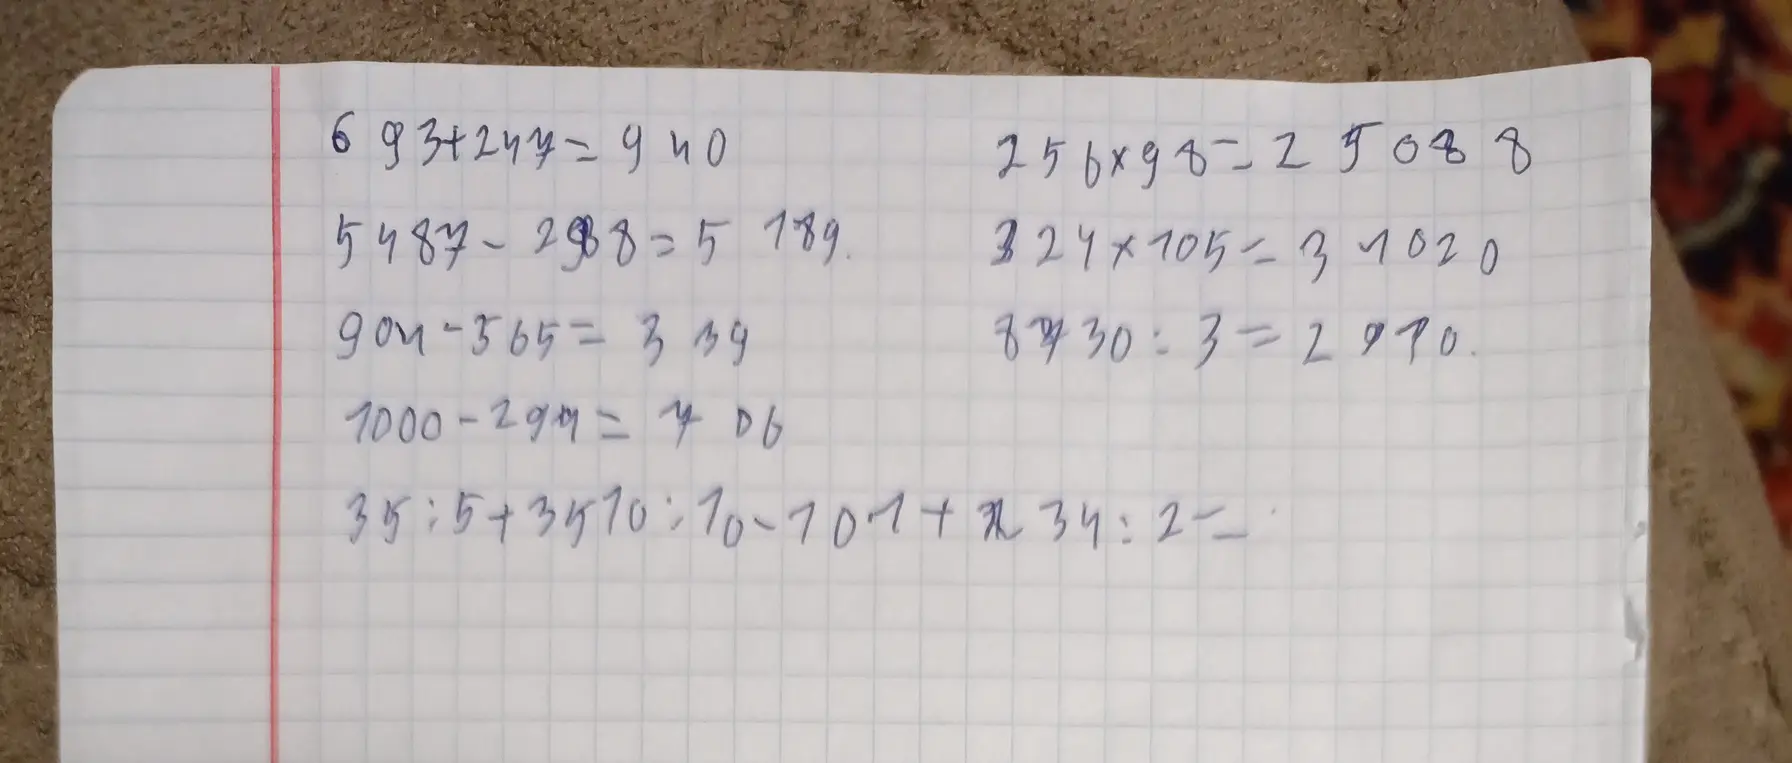 693+247=940
5487-298=5 189.
904-565=339
1000-294=706
35:5+3510:10-101+234:2=
256×98=25088
324×105=31020
8730:3=2910.